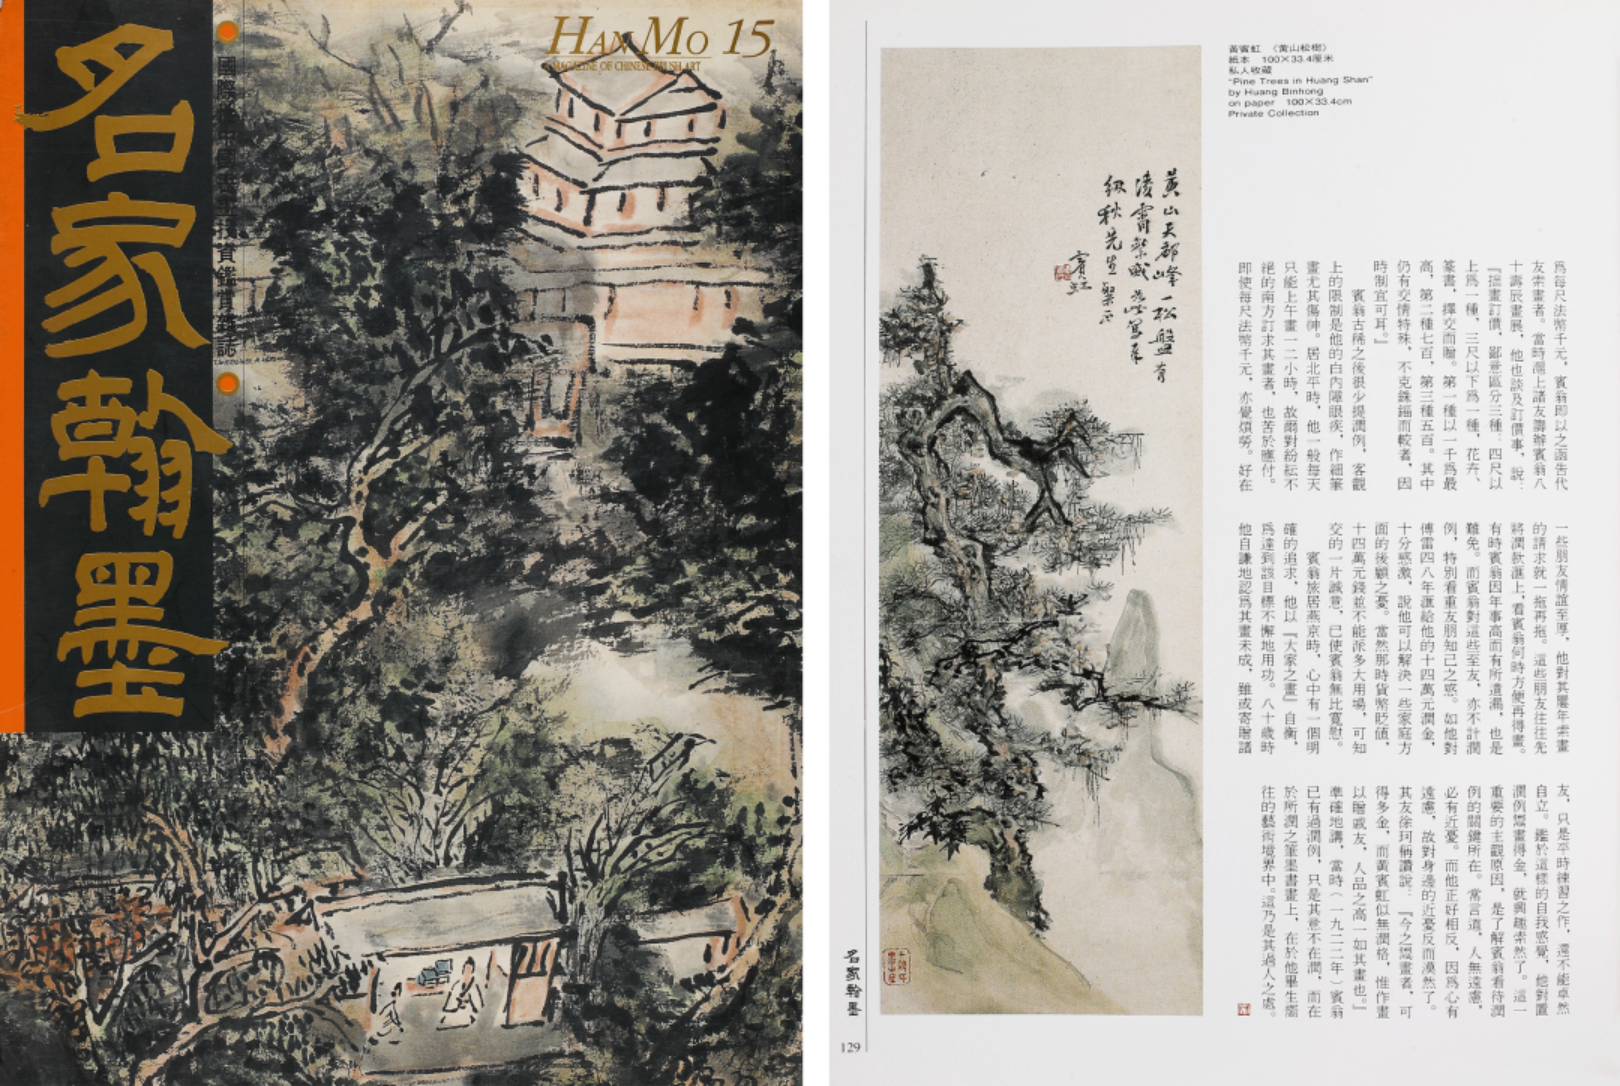 名家翰墨
HAN MO 15
A MAGAZINE OF CHINESE BRUSH ART
國際性中國書畫投資鑑賞雜誌
黃賓虹 《黃山松樹》
紙本 100×33.4厘米
私人收藏
"Pine Trees in Huang Shan"
by Huang Binhong
on paper 100×33.4cm
Private Collection
黃山天都峰一松盤旁
凌霄
紉秋先生粲正
賓虹
爲每尺法幣千元，賓翁即以之函告代
友索畫者。當時滬上諸友籌辦賓翁八
十壽辰畫展，他也談及訂價事，說：
『拙畫訂價，鄙意區分三種：四尺以
上爲一種，三尺以下爲一種，花卉、
篆書，擇交而贈。第一種以一千爲最
高，第二種七百，第三種五百。其中
仍有交情特殊，不克銖錙而較者，因
時制宜可耳。』
賓翁古稀之後很少提潤例，客觀
上的限制是他的白內障眼疾，作細筆
畫尤其傷神。居北平時，他一般每天
只能上午畫一二小時，故爾對紛紜不
絕的南方訂求其畫者，也苦於應付。
即使每尺法幣千元，亦覺煩勞。好在
一些朋友情誼至厚，他對其屢年索畫
的請求就一拖再拖。這些朋友往往先
將潤款滙上，看賓翁何時方便再得畫。
有時賓翁因年事高而有所遺漏，也是
難免。而賓翁對這些至友，亦不計潤
例，特別看重友朋知己之感。如他對
傅雷四八年滙給他的十四萬元潤金，
十分感激，說他可以解決一些家庭方
面的後顧之憂。當然那時貨幣貶值，
十四萬元錢並不能派多大用場，可知
交的一片誠意，已使賓翁無比寬慰。
賓翁旅居燕京時，心中有一個明
確的追求，他以『大家之畫』自衡，
爲達到該目標不懈地用功。八十歲時
他自謙地認爲其畫未成，雖或寄贈諸
友，只是平時練習之作，還不能卓然
自立。鑑於這樣的自我感覺，他對置
潤例鬻畫得金，就興趣索然了。這一
重要的主觀原因，是了解賓翁看待潤
例的關鍵所在。常言道，人無遠慮，
必有近憂。而他正好相反，因爲心有
遠慮，故對身邊的近憂反而漠然了。
其友徐珂稱讚說：『今之鬻畫者，可
得多金，而黃賓虹似無潤格，惟作畫
以贈戚友，人品之高一如其畫也。』
準確地講，當時（一九二二年）賓翁
已有過潤例，只是其意不在潤，而在
於所潤之筆墨書畫上，在於他畢生嚮
往的藝術境界中。這乃是其過人之處。
名家翰墨
129